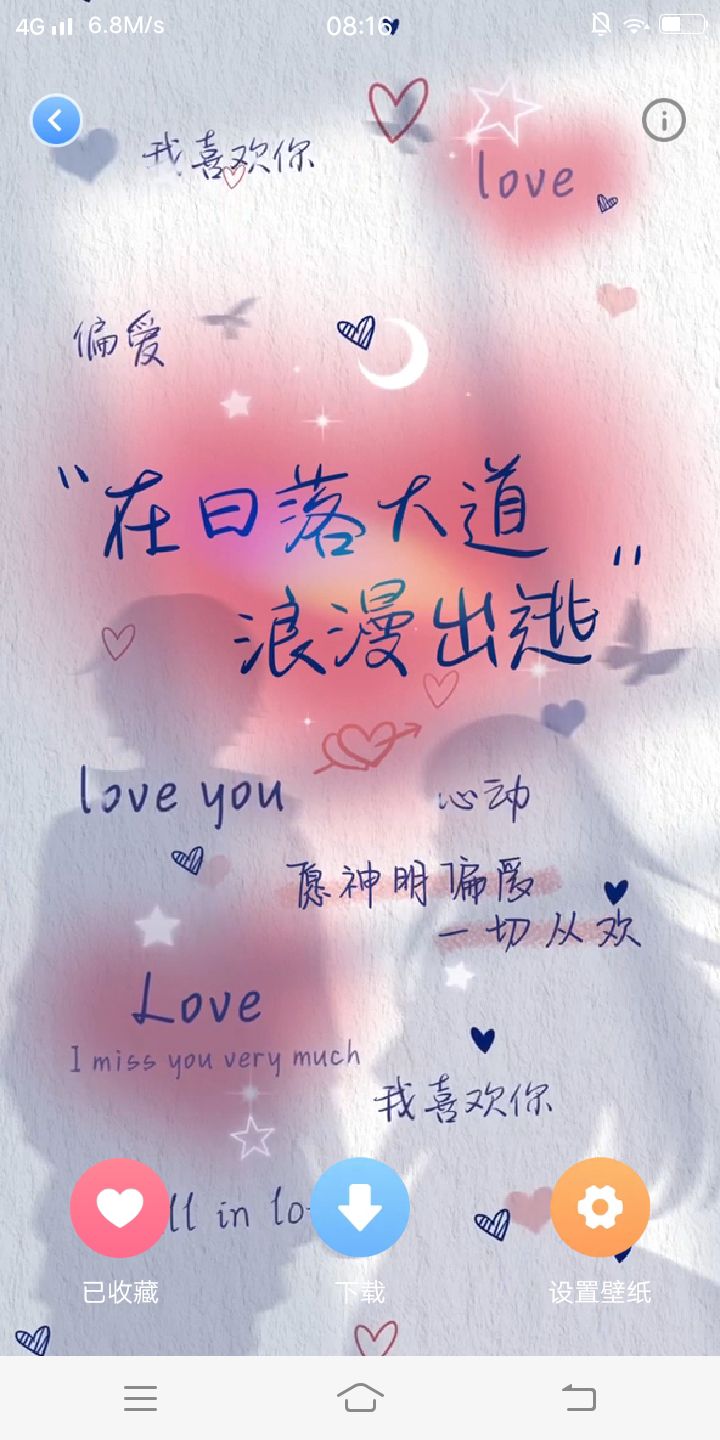 4G 6.8M/s 08:16
我喜欢你
love
偏爱
"在日落大道
浪漫出逃"
love you
心动
愿神明偏爱
一切从欢
Love
I miss you very much
我喜欢你
ll in lo
已收藏
下载
设置壁纸